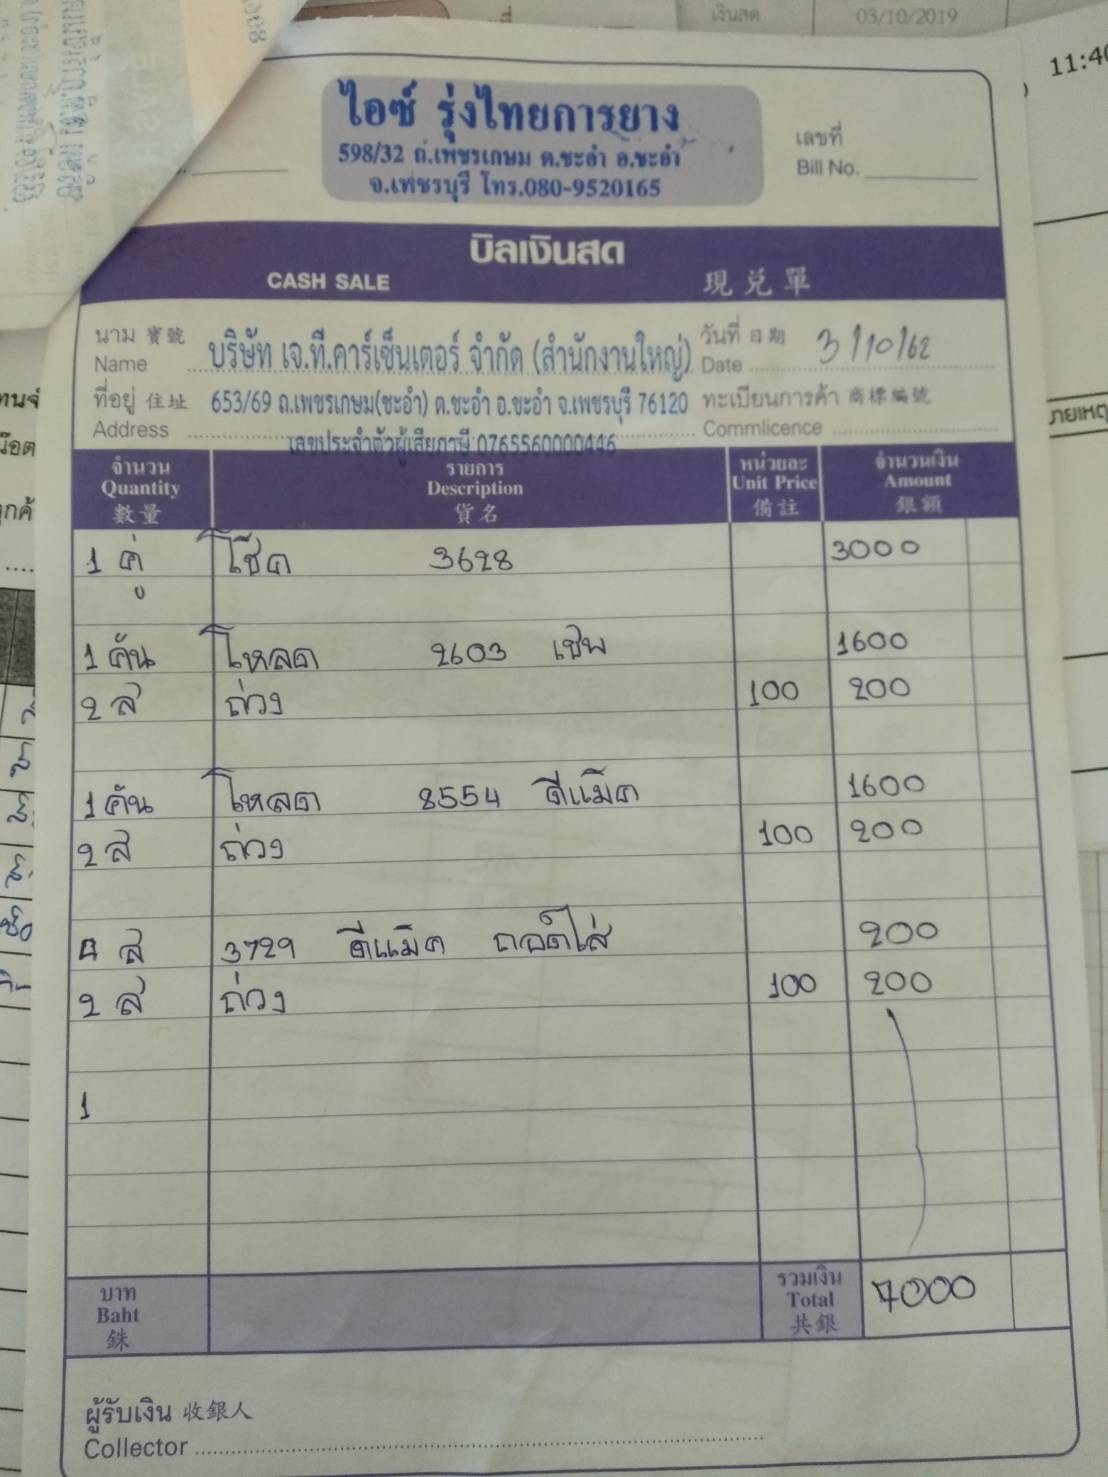 เงินสด 03/10/2019
11:40
ไอซ์ รุ่งไทยการยาง
598/32 ถ.เพชรเกษม ต.ชะอำ อ.ชะอำ
จ.เพชรบุรี โทร.080-9520165
เลขที่
Bill No.
บิลเงินสด
CASH SALE 現兌單
นาม 寶號
Name บริษัท เจ.ที.คาร์เซ็นเตอร์ จำกัด (สำนักงานใหญ่)
วันที่ 日期
Date 3/10/62
ที่อยู่ 住址
Address 653/69 ถ.เพชรเกษม(ชะอำ) ต.ชะอำ อ.ชะอำ จ.เพชรบุรี 76120
เลขประจำตัวผู้เสียภาษี 0765560000446
ทะเบียนการค้า 商標編號
Commlicence
จำนวน รายการ หน่วยละ จำนวนเงิน
Quantity Description Unit Price Amount
數量 貨名 備註 銀額
1 คู่ โช๊ค 3628 3000
1 คัน โหลด 2603 เชฟ 1600
2 ล ถ่วง 100 200
1 คัน โหลด 8554 ดีแม็ค 1600
2 ล ถ่วง 100 200
4 ล 3729 ดีแม็ค ถอดใส่ 200
2 ล ถ่วง 100 200
1
บาท รวมเงิน
Baht Total 7000
銖 共銀
ผู้รับเงิน 收銀人
Collector